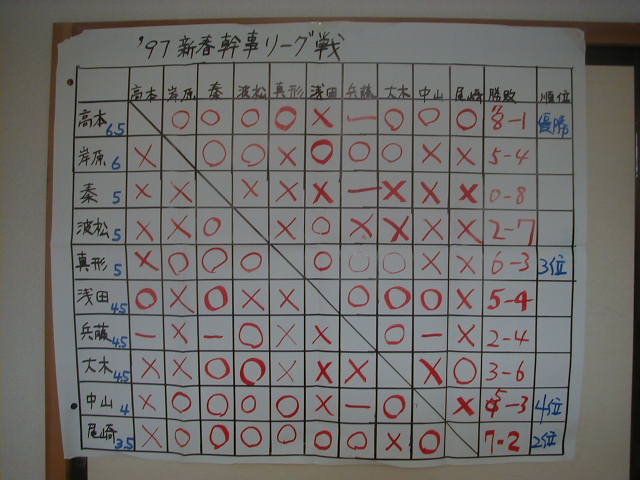 '97 新春幹事リーグ戦
高本 岸原 秦 波松 真形 浅田 兵藤 大木 中山 尾崎 勝敗 順位
高本 6.5 ○ ○ ○ ○ × − ○ ○ ○ 8-1 優勝
岸原 6 × ○ ○ × ○ ○ ○ × × 5-4
秦 5 × × × × × − × × × 0-8
波松 5 × × ○ × ○ × × × × 2-7
真形 5 × ○ ○ ○ ○ ○ ○ × × 6-3 3位
浅田 4.5 ○ × ○ × × ○ ○ ○ × 5-4
兵藤 4.5 − × − ○ × × ○ − × 2-4
大木 4.5 × × ○ ○ × × × × ○ 3-6
中山 4 × ○ ○ ○ ○ × − ○ × 5-3 4位
尾崎 3.5 × ○ ○ ○ ○ ○ ○ × ○ 7-2 2位